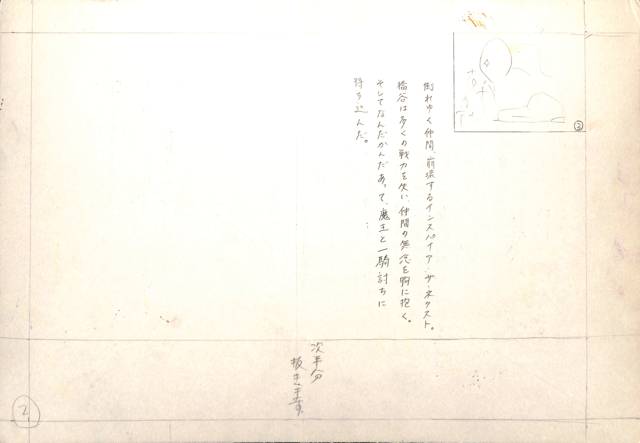 倒れゆく仲間、崩壊するインスパイア・ザ・ネクスト。
橋谷は多くの戦力を失い、仲間の無念を胸に抱く。
そしてなんだかんだあって、魔王と一騎討ちに
持ち込んだ。
次半分
抜きます
②
2